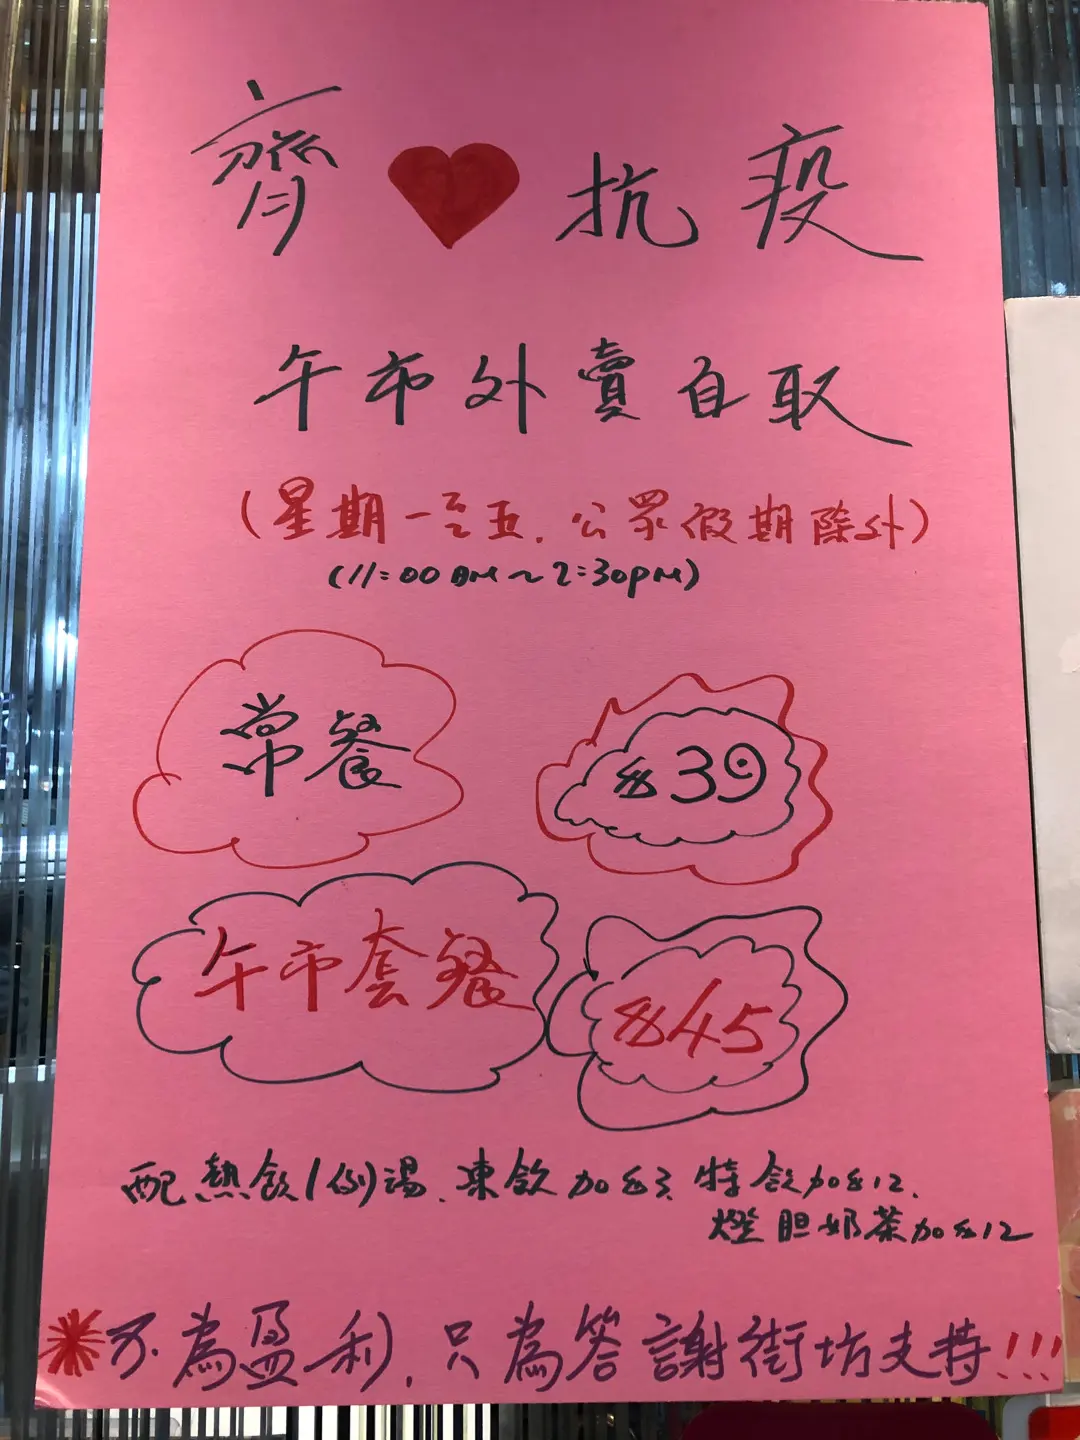 齊❤抗疫
午市外賣自取
(星期一至五.公眾假期除外)
(11:00AM~2:30PM)
常餐 $39
午市套餐 $45
配熱飲/例湯.凍飲加$3.特飲加$12.
燈胆奶茶加$12
*不為盈利.只為答謝街坊支持!!!